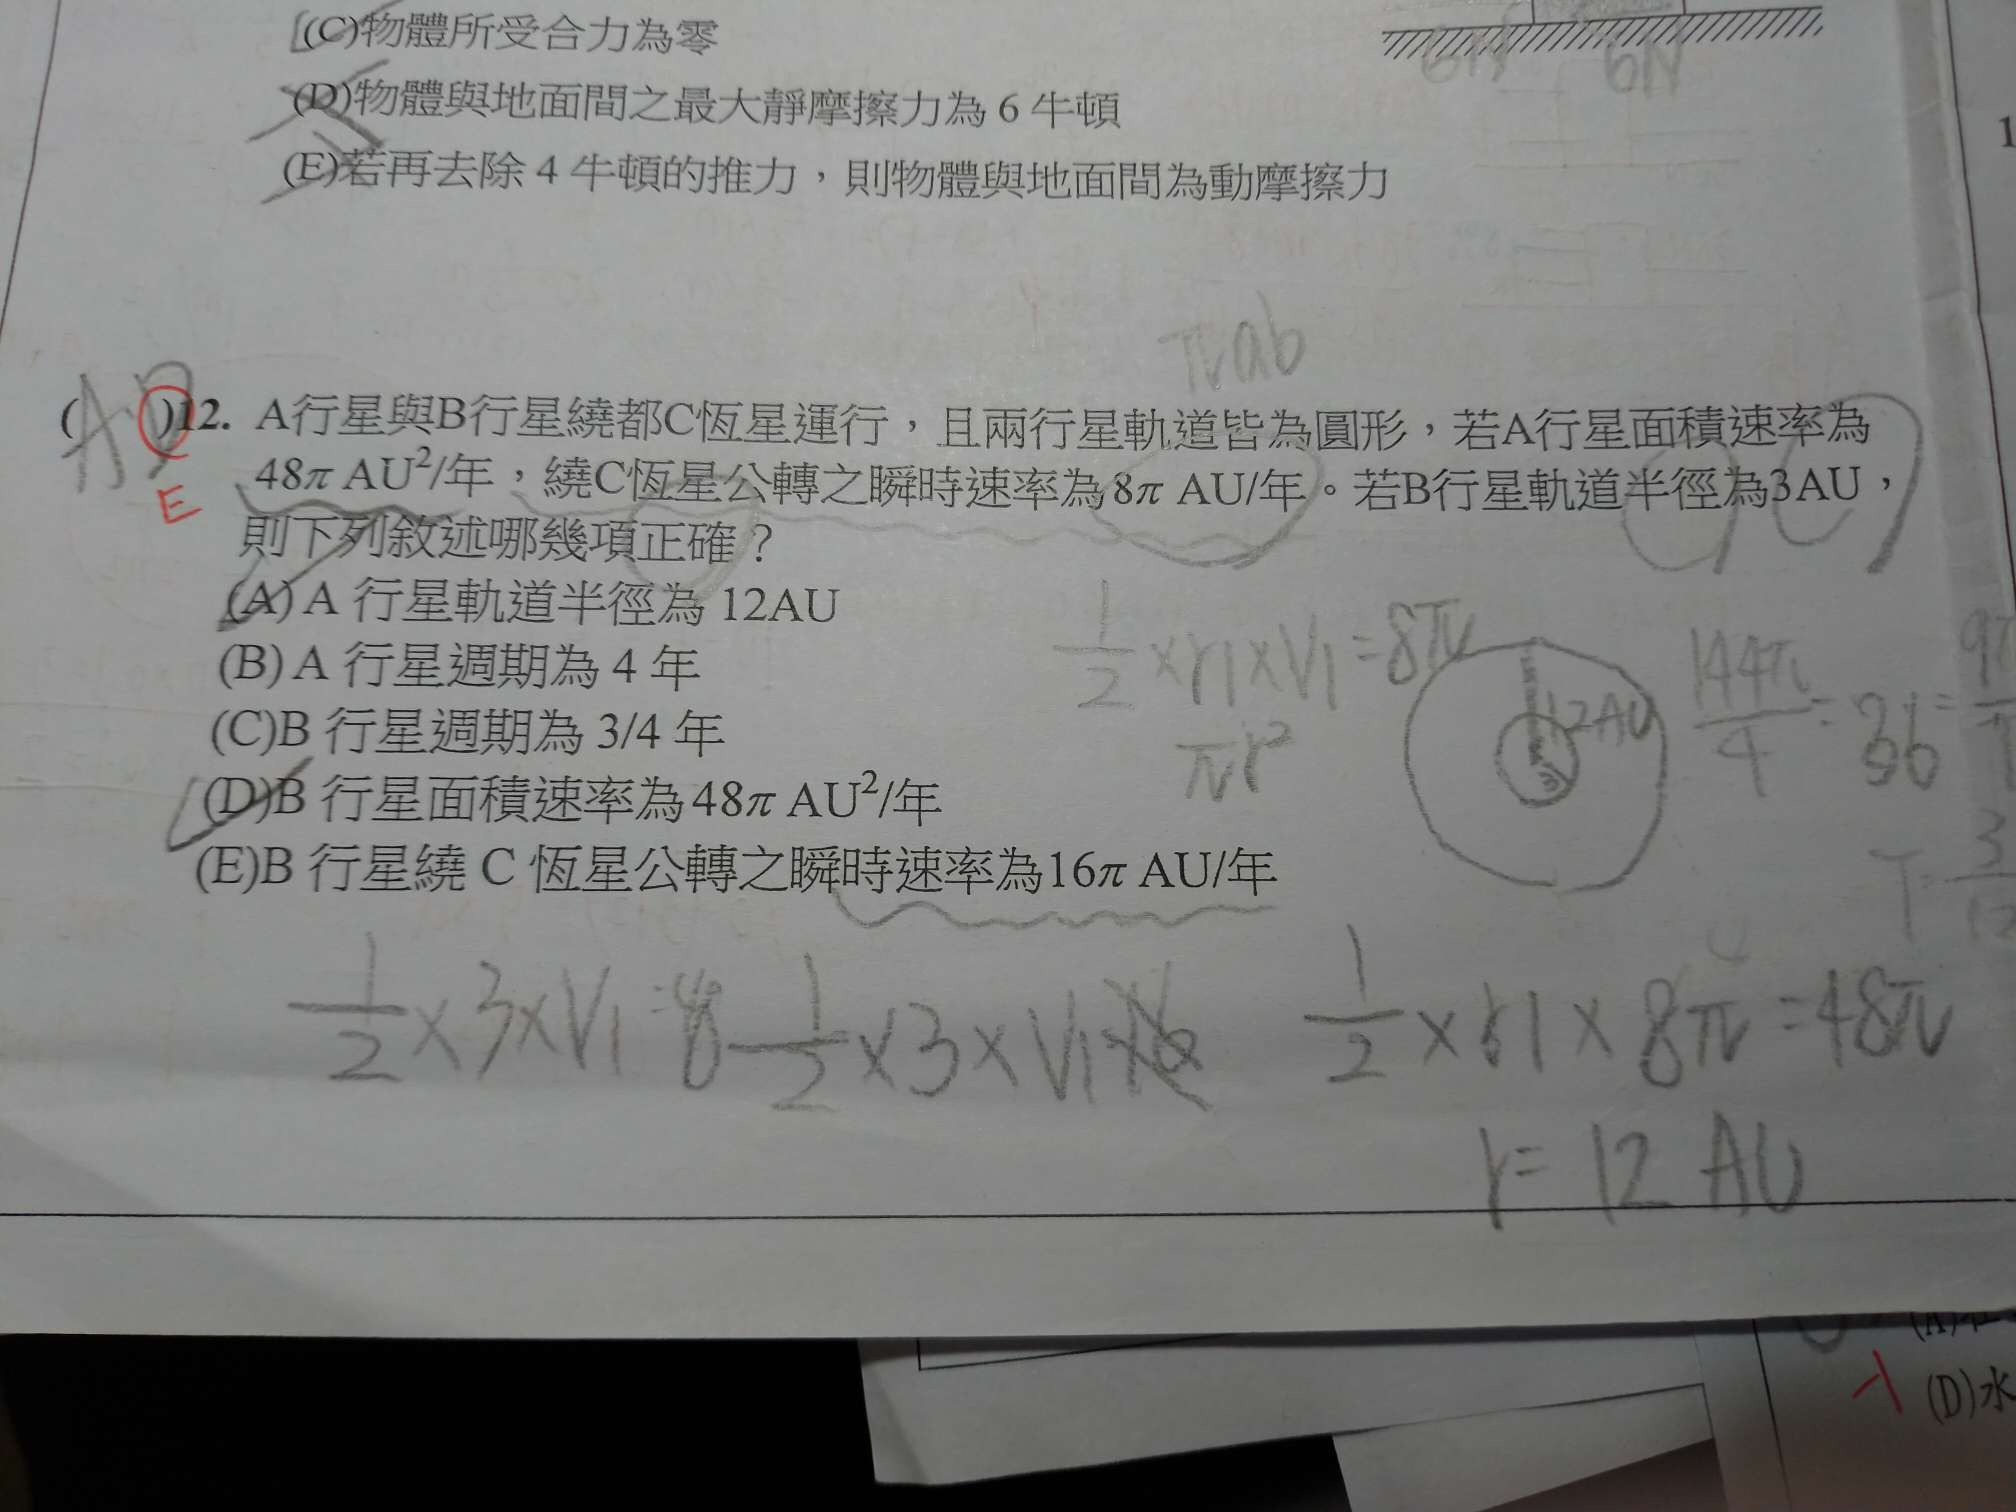 (C)物體所受合力為零
(D)物體與地面間之最大靜摩擦力為 6 牛頓
(E)若再去除 4 牛頓的推力，則物體與地面間為動摩擦力
6N 6N
πab
(A D)12. A行星與B行星繞都C恆星運行，且兩行星軌道皆為圓形，若A行星面積速率為
E
48π AU²/年，繞C恆星公轉之瞬時速率為8π AU/年。若B行星軌道半徑為3AU，
則下列敘述哪幾項正確？
(A) A 行星軌道半徑為 12AU
(B) A 行星週期為 4 年
(C)B 行星週期為 3/4 年
(D)B 行星面積速率為48π AU²/年
(E)B 行星繞 C 恆星公轉之瞬時速率為16π AU/年
1/2 ×r1×V1=8π
πr²
12AU
3
144π/4 = 36 =
1/2 ×3×V1=
1/2 ×3×V1
1/2 ×r1×8π=48π
r= 12 AU
(D)水